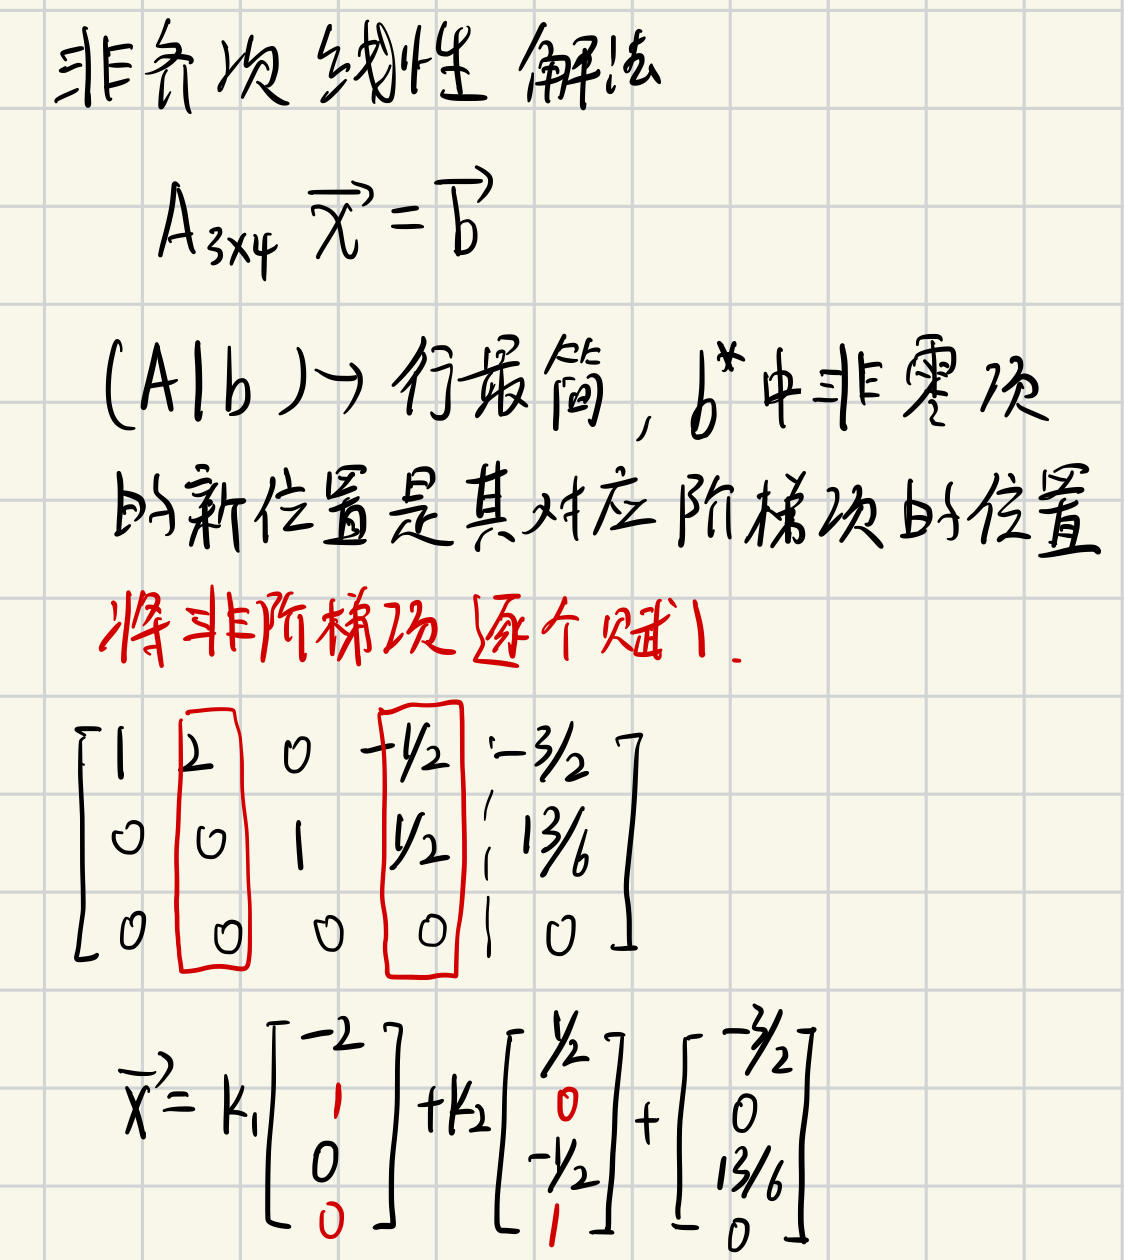 非齐次线性解法
A₃ₓ₄ x⃗ = b⃗
(A|b) → 行最简, b*中非零项
的新位置是其对应阶梯项的位置
将非阶梯项逐个赋1.
[1 2 0 -1/2 ¦ -3/2
0 0 1 1/2 ¦ 13/6
0 0 0 0 ¦ 0]
x⃗ = k₁[-2 1 0 0] + k₂[1/2 0 -1/2 1] + [-3/2 0 13/6 0]